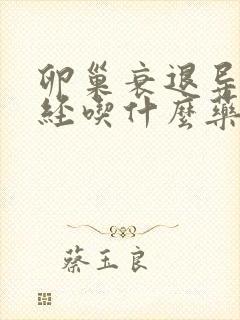 卵巢衰退导
经喫什麼藥
蔡玉良